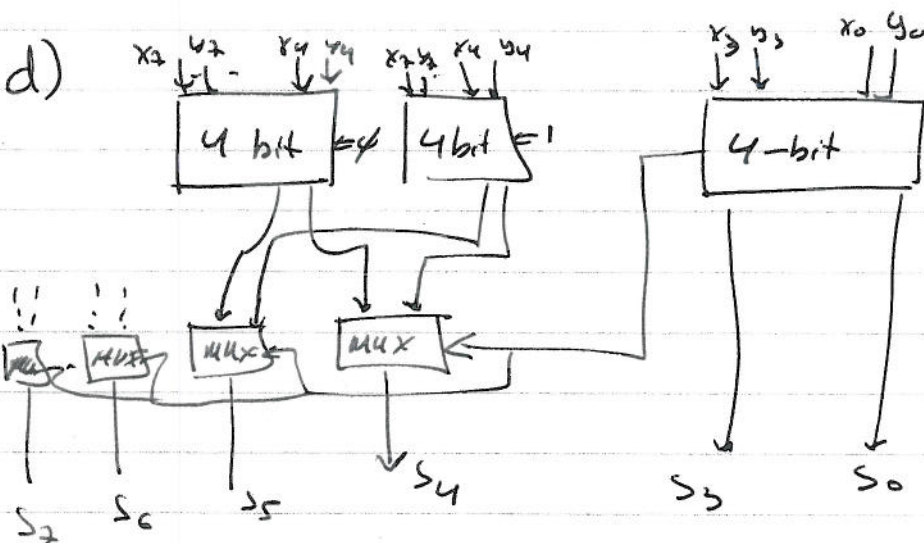 d)
x7 y7 x4 y4 x7 y7 x4 y4 x3 y3 x0 y0
4 bit =0 4bit =1 4-bit
mux mux mux mux
S7 S6 S5 S4 S3 S0